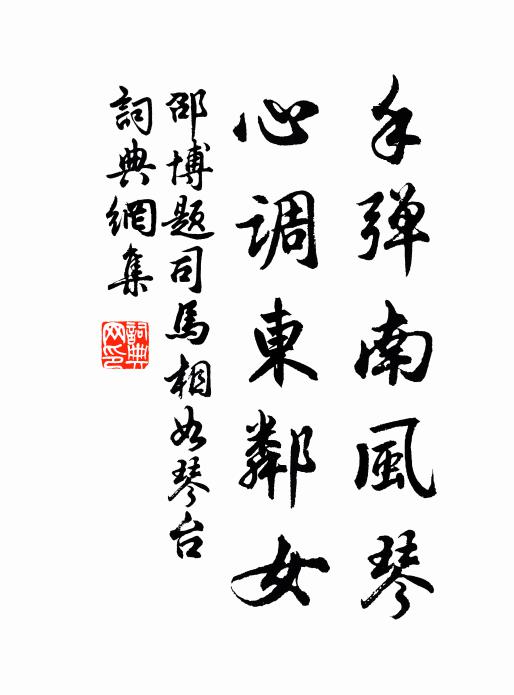 手弹南風琴
心调東鄰女
邵博题司馬相如琴台
詞典網集
詞典网印